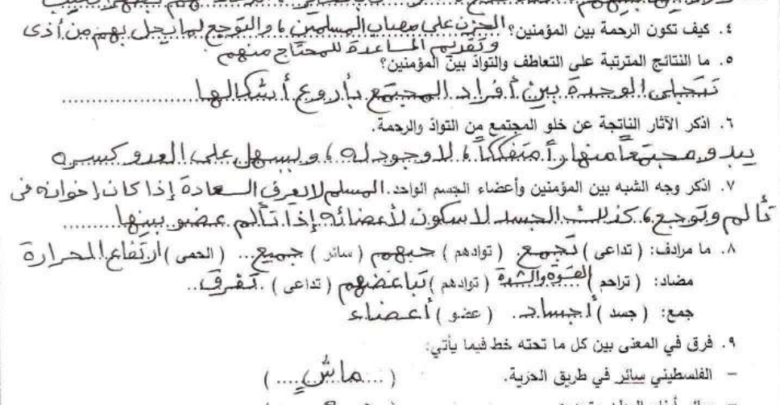 ٤. كيف تكون الرحمة بين المؤمنين؟ الحزن على مصاب المسلمين، والتوجع لما يحل بهم من أذى
وتقديم المساعدة للمحتاج منهم.
٥. ما النتائج المترتبة على التعاطف والتوادّ بين المؤمنين؟
تتجلى الوحدة بين أفراد المجتمع بأروع أشكالها
٦. اذكر الآثار الناتجة عن خلو المجتمع من التوادّ والرحمة.
يبدو مجتمعاً منهاراً متفككاً، لا وجود له، ويسهل على العدو كسره
٧. اذكر وجه الشبه بين المؤمنين وأعضاء الجسم الواحد. المسلم لا يعرف السعادة إذا كان إخوانه في
تألم وتوجع، كذلك الجسد لا سكون لأعضائه إذا تألم عضو بينها
٨. ما مرادف: (تداعى) تجمع (توادهم) حبهم (سائر) جميع... (الحمى) ارتفاع الحرارة
مضاد: (تراحم) القسوة والشدة (توادهم) تباغضهم (تداعى) تفرق..
جمع: (جسد) أجساد. (عضو) أعضاء
٩. فرق في المعنى بين كل ما تحته خط فيما يأتي:
– الفلسطيني سائر في طريق الحرّية. (ماشٍ....)